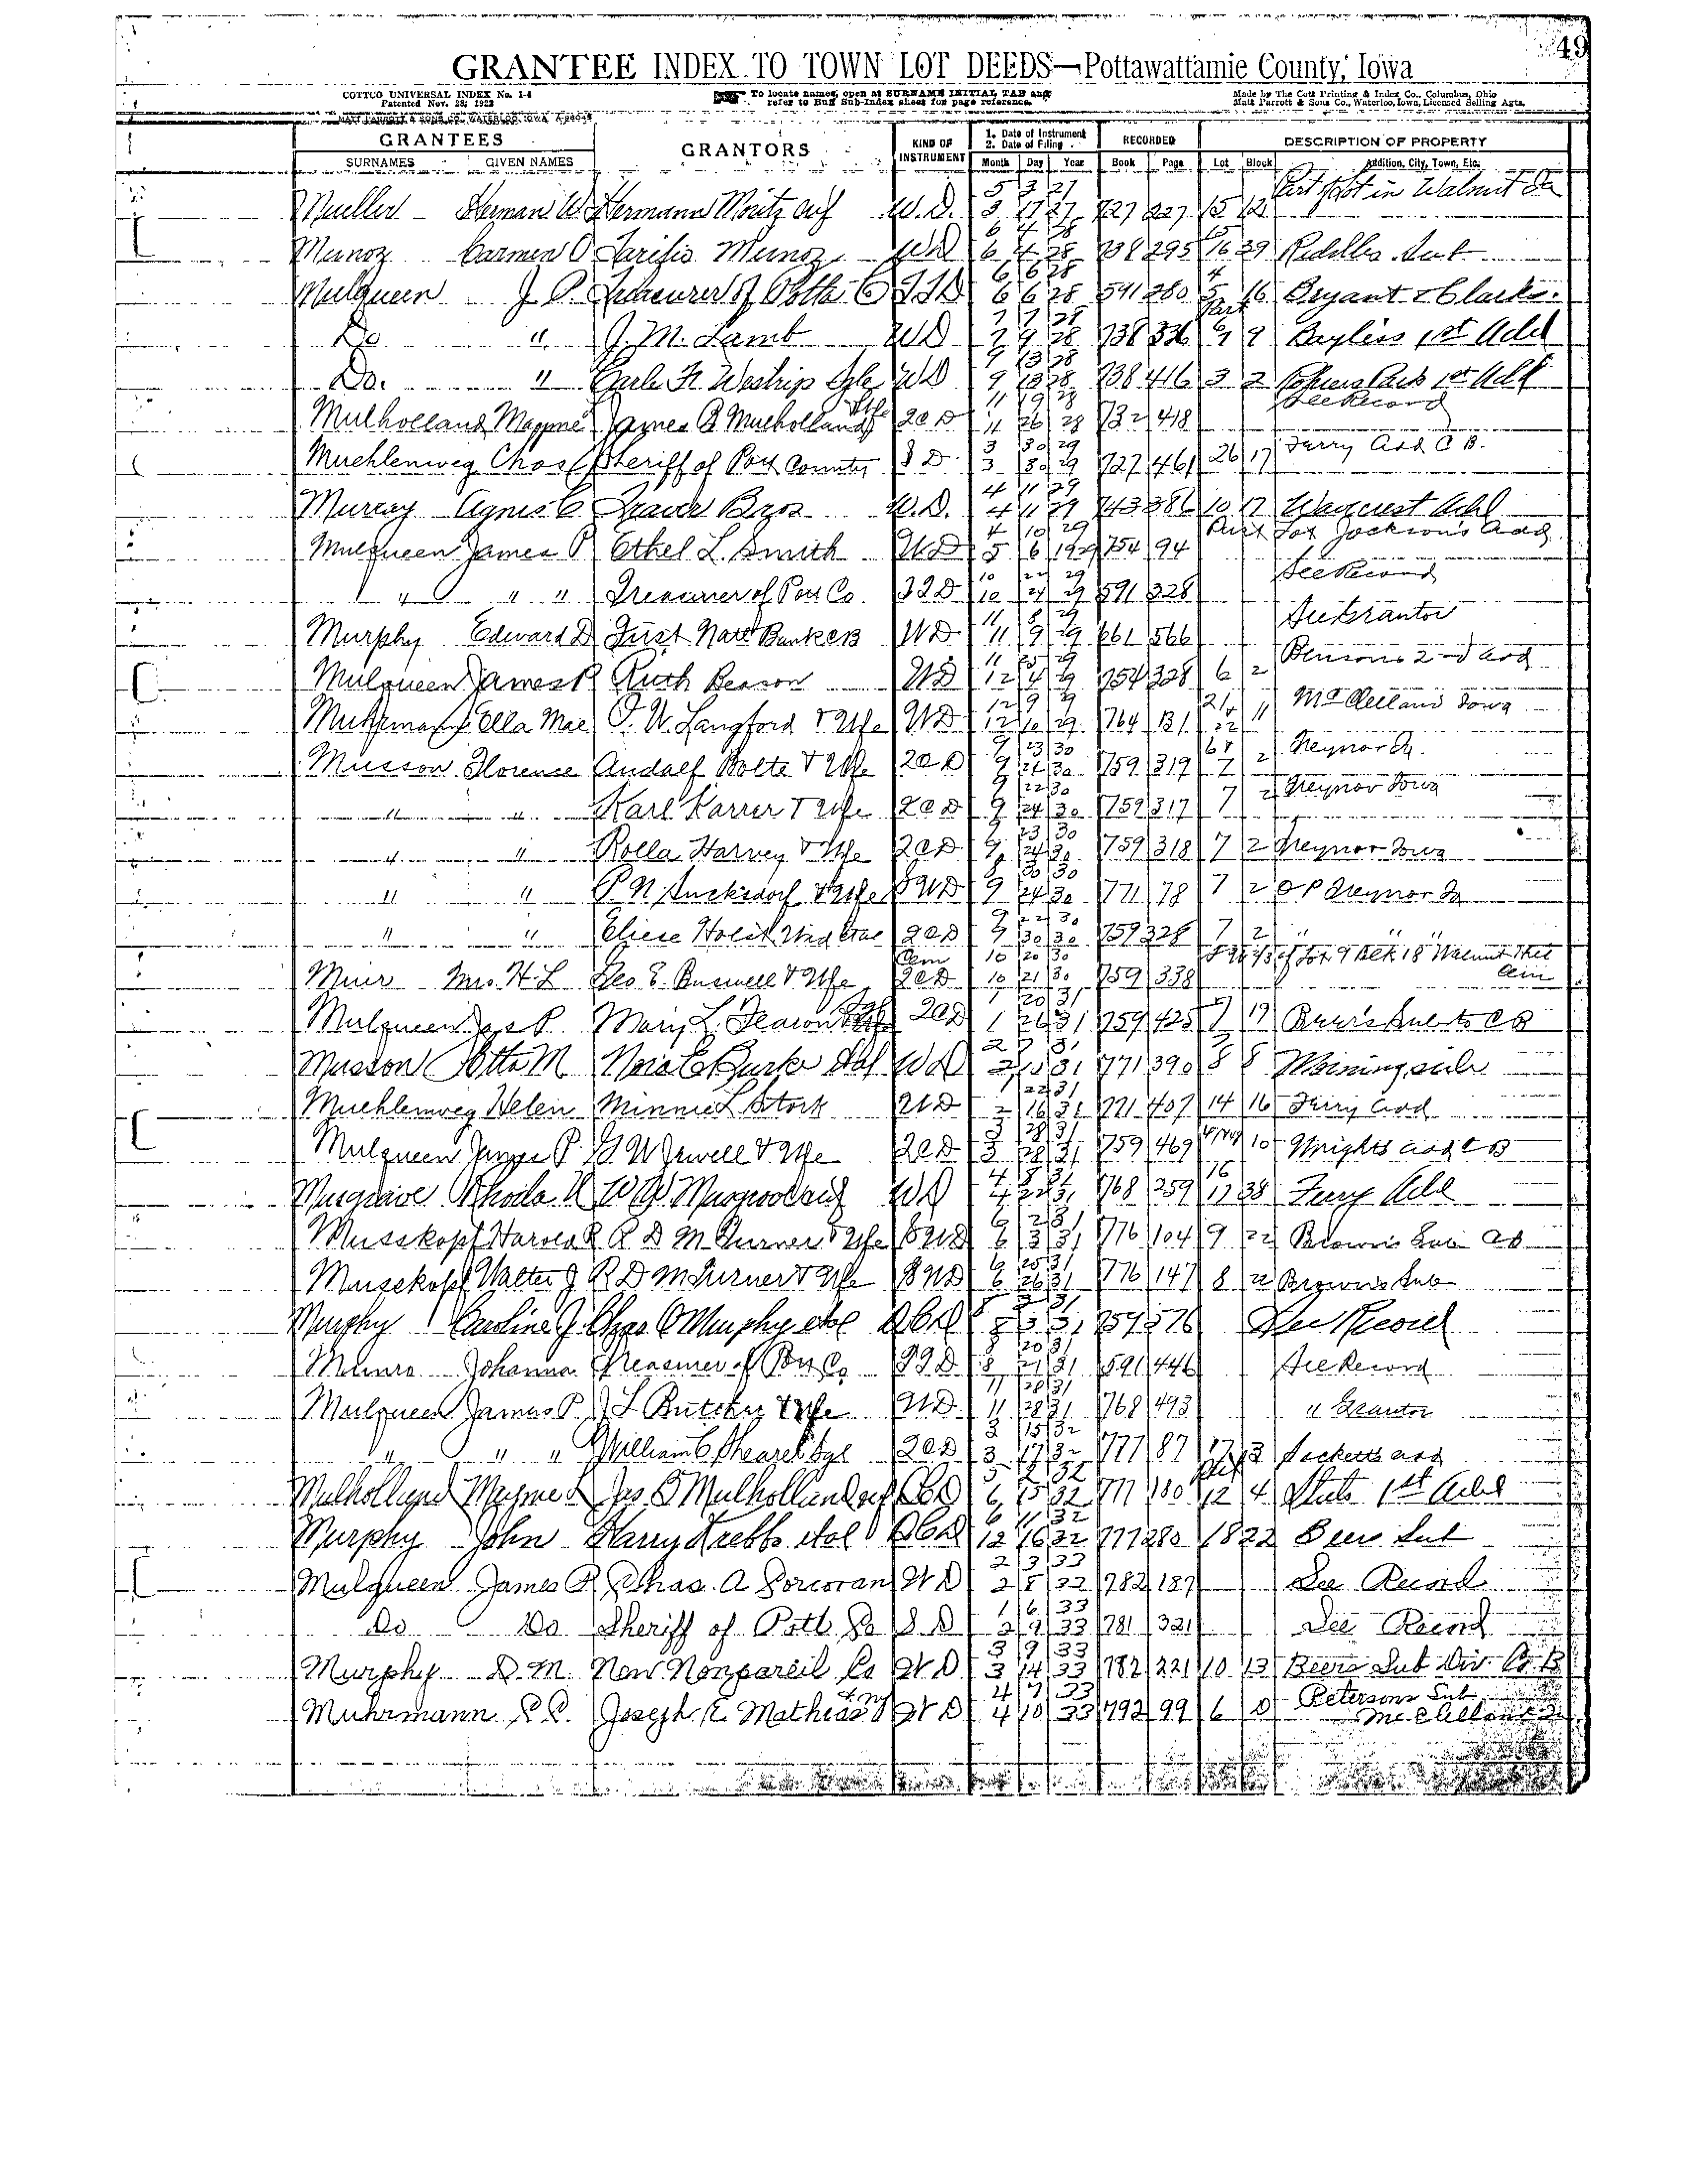 49
GRANTEE INDEX TO TOWN LOT DEEDS—Pottawattamie County, Iowa
COTTCO UNIVERSAL INDEX No. 1-4
Patented Nov. 28, 1922
To locate names, open at SURNAME INITIAL TAB and
refer to Buff Sub-Index sheet for page reference.
Made by The Cott Printing & Index Co., Columbus, Ohio
Matt Parrott & Sons Co., Waterloo, Iowa, Licensed Selling Agts.
MATT PARROTT & SONS CO., WATERLOO, IOWA
GRANTEES GRANTORS KIND OF INSTRUMENT 1. Date of Instrument 2. Date of Filing RECORDED DESCRIPTION OF PROPERTY
SURNAMES GIVEN NAMES Month Day Year Book Page Lot Block Addition, City, Town, Etc.
5 3 27 Part of Lot in Walnut Ia
Mueller Herman W. Hermann Moritz W.D. 3 17 27 727 227 15 12
6 4 28 15
Munoz Carmen O Munoz WD 6 4 28 738 295 16 39 Riddles Sub
6 6 28 4
Mulqueen J P. Treasurer of Potta Co T.T.D 6 6 28 591 280 5 16 Bryant & Clarks
7 7 28 Part
Do " J. M. Lamb WD 7 9 28 738 336 9 Bayliss 1st Add
9 13 28
Do. " Westrip Sgle WD 9 13 28 738 416 3 2 Park 1st Add
11 19 28 See Record
Mulholland Mayme James B Mulholland & Wife QCD 11 26 28 732 418
3 30 29 Ferry Add C B.
Muehlenweg Chas Sheriff of Pott County S D 3 30 29 727 461 26 17
4 11 29
Murray Agnes C Bros W.D. 4 11 29 743 386 10 17 Add
4 10 29 Part Lot Jackson's Add
Mulqueen James P Ethel L. Smith WD 5 6 1929 754 94
10 22 29 See Record
" " " Treasurer of Pott Co. TTD 10 24 29 591 328
11 8 29 See Grantor
Murphy Edward D First Natl Bank CB WD 11 9 29 661 566
11 25 29 Bensons 2nd Add
Mulqueen James P Ruth Beason WD 12 4 29 754 328 6 2
12 9 29 21 McClelland Iowa
Muhrmann Ella Mae O. W. Langford & Wife WD 12 10 29 764 131 22 11
9 23 30 6 & Treynor Ia.
Musson Florence Andalf Bolte & Wife QCD 9 24 30 759 319 7 2
9 22 30 Treynor Iowa
" " Karl Karrer & Wife QCD 9 24 30 759 317 7 2
9 23 30
" " Rolla Harvey & Wife QCD 9 24 30 759 318 7 2 Treynor Iowa
30 30
" " P. N. Sucksdorf & Wife SWD 9 24 30 771 78 7 2 O P Treynor Ia
9 22 30
" " Eliese Holst Wid etal QCD 9 30 30 759 328 7 2 " " "
Cem 10 20 30 of Lot 9 Blk 18 Walnut Hill
Muir Mrs. H. L Geo. E. Buswell & Wife QCD 10 21 30 759 338 Cem
1 20 31
Mulqueen Jas P. Mary L. QCD 1 26 31 759 425 7 19 Beer's Sub to C B
2 7 31 7
Musson Otto M Nora E Burke etal WD 2 31 771 390 8 8 Morningside
1 22 31
Muehlenweg Helen Minnie L Stork WD 2 16 31 771 407 14 16 Ferry Add
3 28 31
Mulqueen James P. G. W Jewell & Wife QCD 3 28 31 759 469 10 Wrights Add C B
4 8 31 16
Musgrave Rhoda WD 4 22 31 768 259 17 38 Ferry Add
6 2 31
Musskopf Harold R R D M Turner & Wife SWD 6 3 31 776 104 9 22 Browns Sub CB
6 25 31
Musskopf Walter J R D M Turner & Wife SWD 6 26 31 776 147 8 22 Browns Sub
8 3 31
Murphy Caroline J Chas O Murphy etal QCD 8 3 31 759 576 See Record
8 20 31
Munro Johanna Treasurer of Pott Co TTD 8 21 31 591 446 See Record
11 28 31
Mulqueen James P. J L Butcher & Wife WD 11 28 31 768 493 " Grantor
3 15 32
" " " William C Shearel Sgl QCD 3 17 32 777 87 17 13 Sacketts Add
5 2 32
Mulholland Mayme L Jas B Mulholland QCD 6 15 32 777 180 12 4 Stuts 1st Add
6 11 32
Murphy John Harry Krebbs etal QCD 12 16 32 777 280 18 22 Beers Sub
2 3 33
Mulqueen James P Chas. A Corcoran W D 2 8 33 782 187 See Record
1 6 33
Do Do Sheriff of Pott Co S D 2 9 33 781 321 See Record
3 9 33
Murphy D. M. New Nonpareil Co W D 3 14 33 782 221 10 13 Beers Sub Div Co B
4 7 33 Petersons Sub
Muhrmann P. P. Joseph E. Mathias W D 4 10 33 792 99 6 D McClelland